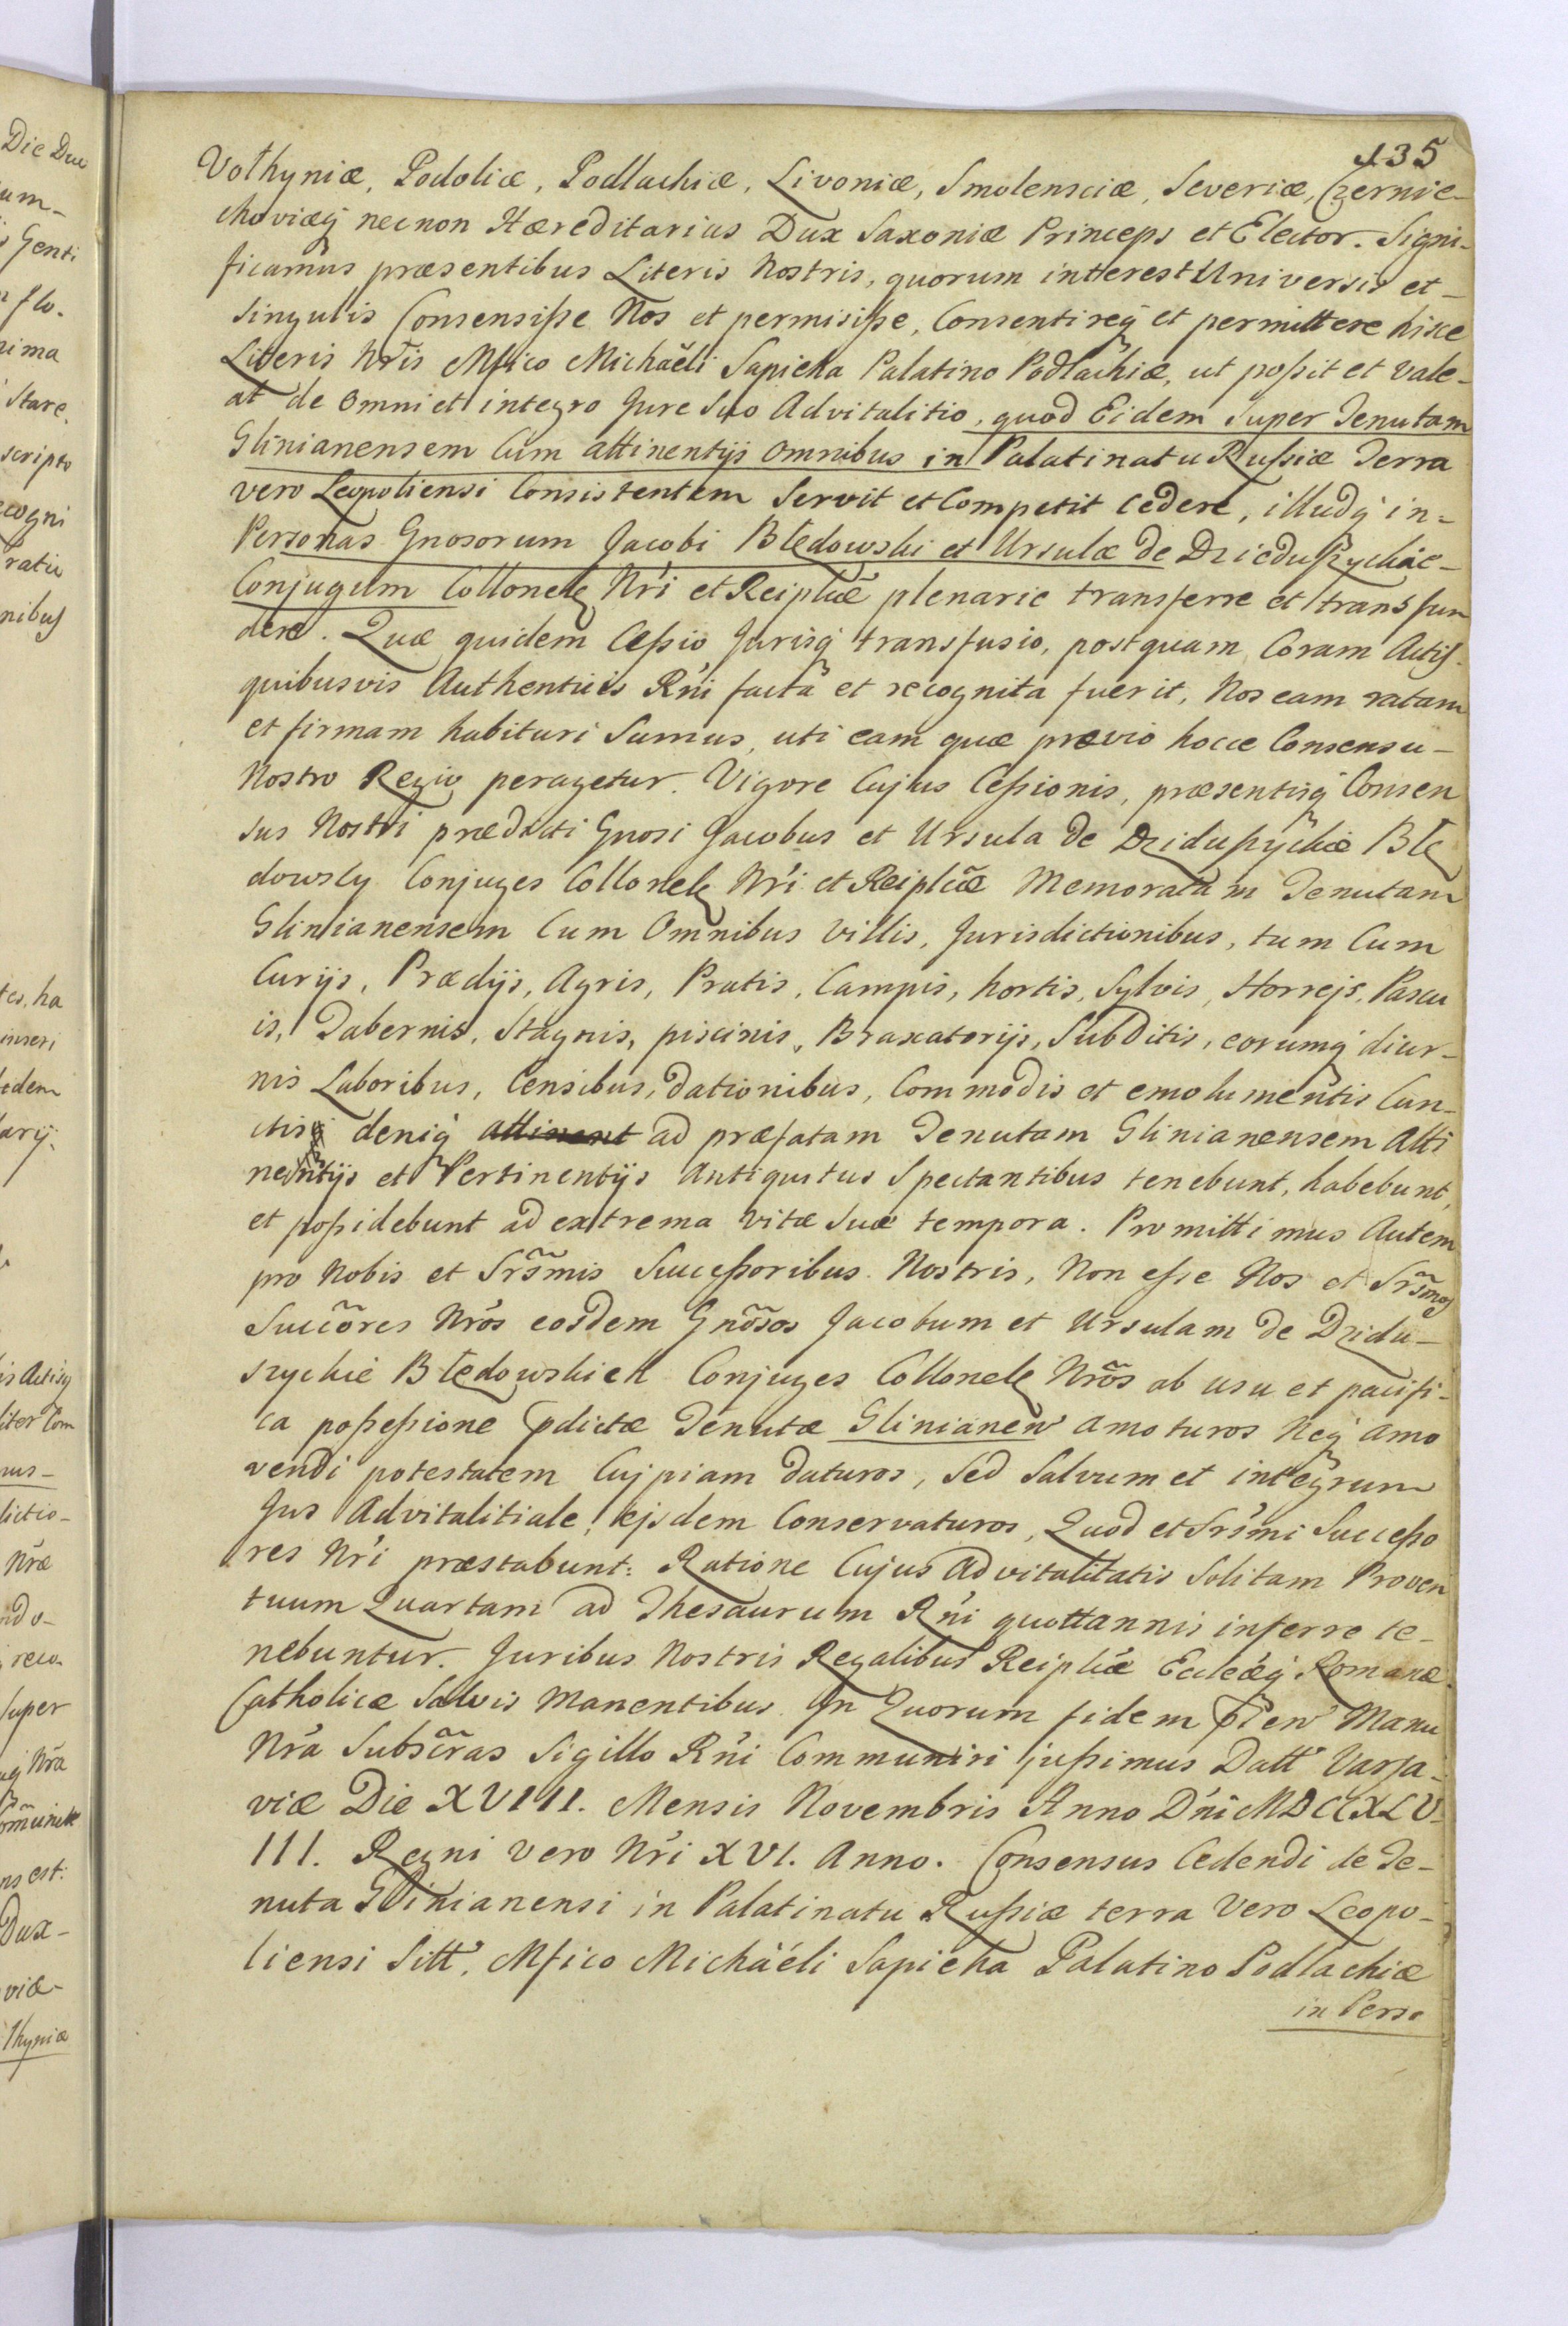 135
Vołhyniæ, Podoliæ, Podlachiæ, Livoniæ, Smolensciæ, Severiæ, Czernie-
choviæq́ necnon Hæreditarius Dux Saxoniæ Princeps et Elector. Signi-
ficamus præsentibus Literis Nostris, quorum interest Universis et-
singulis Consensiße Nos et permisiße, Consentireq́ et permittere hisce
Literis Nr̃is Mfico Michaëli Sapieha Palatino Podlachiæ, ut poßit et vale-
at de omni et integro Jure Suo Advitalitio, quod Eidem super Tenutam
Glinianensem Cum attinentijs omnibus in Palatinatu Rußiæ Terra
vero Leopoliensi Consistentem Servit et Competit cedere, illudq́ in-
Personas Gnosorum Jacobi Błędowski et Ursulæ de Dzieduszyckie-
Conjugum Collonelę Nr̃i et Reiplicæ plenarie transferre et transfun
dere. Quæ quidem Ceßio Jurisq́ transfusio, postquam Coram Actis
quibusvis Authenticis Rńi facta et recognita fuerit, Nos eam ratam
et firmam habituri Sumus, uti eam quæ prævio hocce Consensu-
Nostro Regio peragetur. Vigore Cujus Ceßionis, præsentisq́ Consen
sus Nostri prædicti Gnosi Jacobus et Ursula de Dzidußyckie Błę
dowscy Conjuges Collonelę Nr̃i et Reiplicæ Memoratam Tenutam
Glinianensem Cum Omnibus Villis, Jurisdictionibus, tum Cum
Curijs, Prædijs, Agris, Pratis, Campis, hortis, Sylvis, Horrejs, Pascu
is, Tabernis, Stagnis, piscinis, Braxatorijs, Subditis, eorumq́ diur-
nis Laboribus, Censibus, dationibus, Commodis et emolumentis Cun-
ctis deniq́ attinent ad præfatam Tenutam Glinianensem Atti
nentijs et Pertinentijs Antiquitus Spectantibus tenebunt, habebunt,
et poßidebunt ad extrema vitæ suæ tempora. Promittimus Autem
pro Nobis et Srs̃mis Succeßoribus Nostris, Non eße Nos et Srs̃mos
Succõres Nrós eosdem Gnõsos Jacobum et Ursulam de Dzidu-
szyckie Błędowskich Conjuges Collonelę Nrõs ab usu et pacifi-
ca poßeßione pdictæ Tenutæ Glinianen̕ amoturos Neq́ amo
vendi potestatem Cujpiam daturos, Sed Salvum et integrum
Jus Advitalitiale, ejsdem Conservaturos, Quod et Srśmi Succeßo
res Nr̃i præstabunt: Ratione Cujus Advitalitatis Solitam Proven
tuum Quartam ad Thesaurum Rńi quottannis inferre te-
nebuntur. Juribus Nostris Regalibus Reiplicæ Eccleæq́ Romanæ
Catholicæ Salvis Manentibus. In Quorum fidem pten̕ Manu
Nrá Subsc̃ras Sigillo Rńi Communiri jußimus Datt̕ Varsa-
viæ Die XVIII. Mensis Novembris Anno Dńi MDCCXLV-
III. Regni vero Nr̃i XVI. Anno. Consensus Cedendi de Te-
nuta Glinianensi in Palatinatu Rußiæ terra vero Leopo-
liensi Sitt̕, Mfico Michaéli Sapieha Palatino Podlachiæ
in Perso